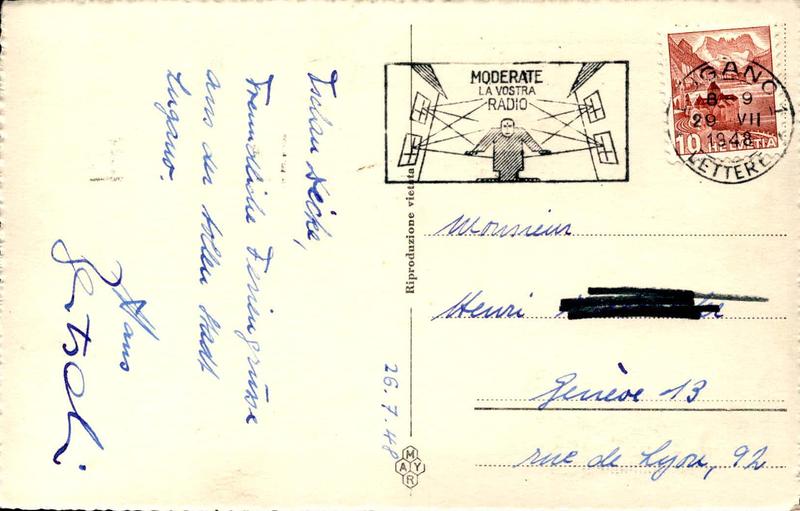 Tschau Decke,
Freundliche Feriengrüsse
aus der tollen Stadt
Lugano.
Hans
26.7.48
Riproduzione vietata
MAYR
MODERATE
LA VOSTRA
RADIO
LUGANO 1
8-9
29 VII
1948
LETTERE
10 HELVETIA
Monsieur
Henri
Genève 13
rue de Lyon, 92